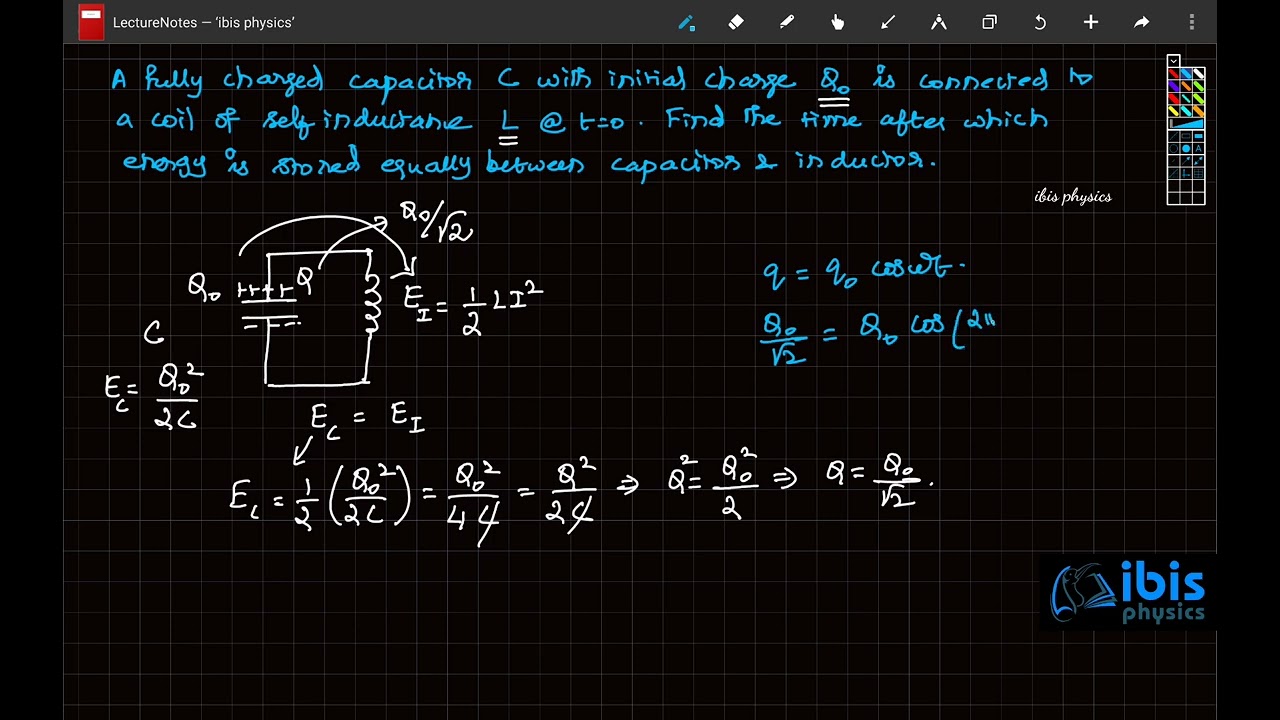 LectureNotes – 'ibis physics'
A fully charged capacitor C with initial charge Q₀ is connected to
a coil of self inductance L @ t=0. Find the time after which
energy is stored equally between capacitor & inductor.
ibis physics
Q₀/√2
Q₀ ++++ Q
E_I = 1/2 LI²
C
E_C = Q₀²/2C
E_C = E_I
E_C = 1/2 (Q₀²/2C) = Q₀²/4C = Q²/2C ⇒ Q² = Q₀²/2 ⇒ Q = Q₀/√2.
q = q₀ cos ωt.
Q₀/√2 = Q₀ cos(2π
ibis
physics